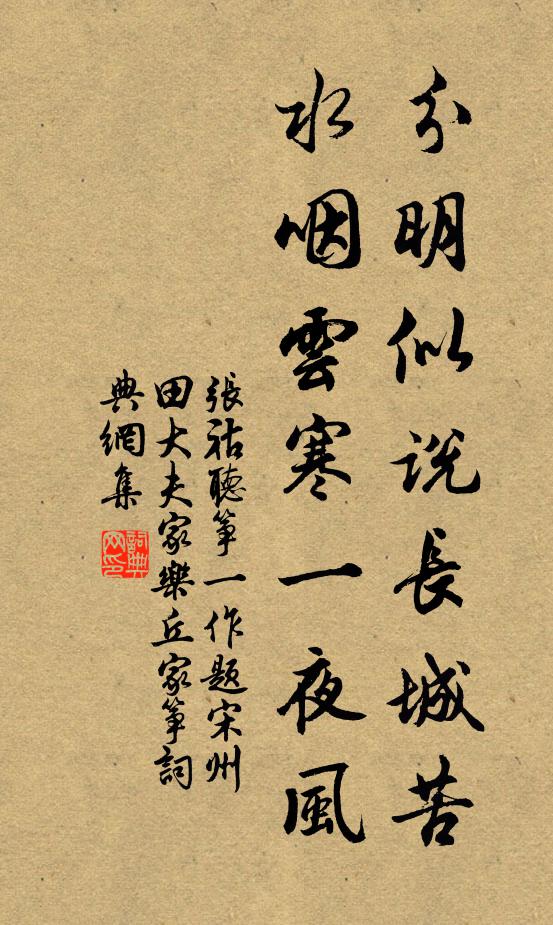 分明似説長城苦
水咽雲寒一夜風
張祜聽筝一作題宋州
田大夫家樂丘家筝詞
典網集
詞典網印